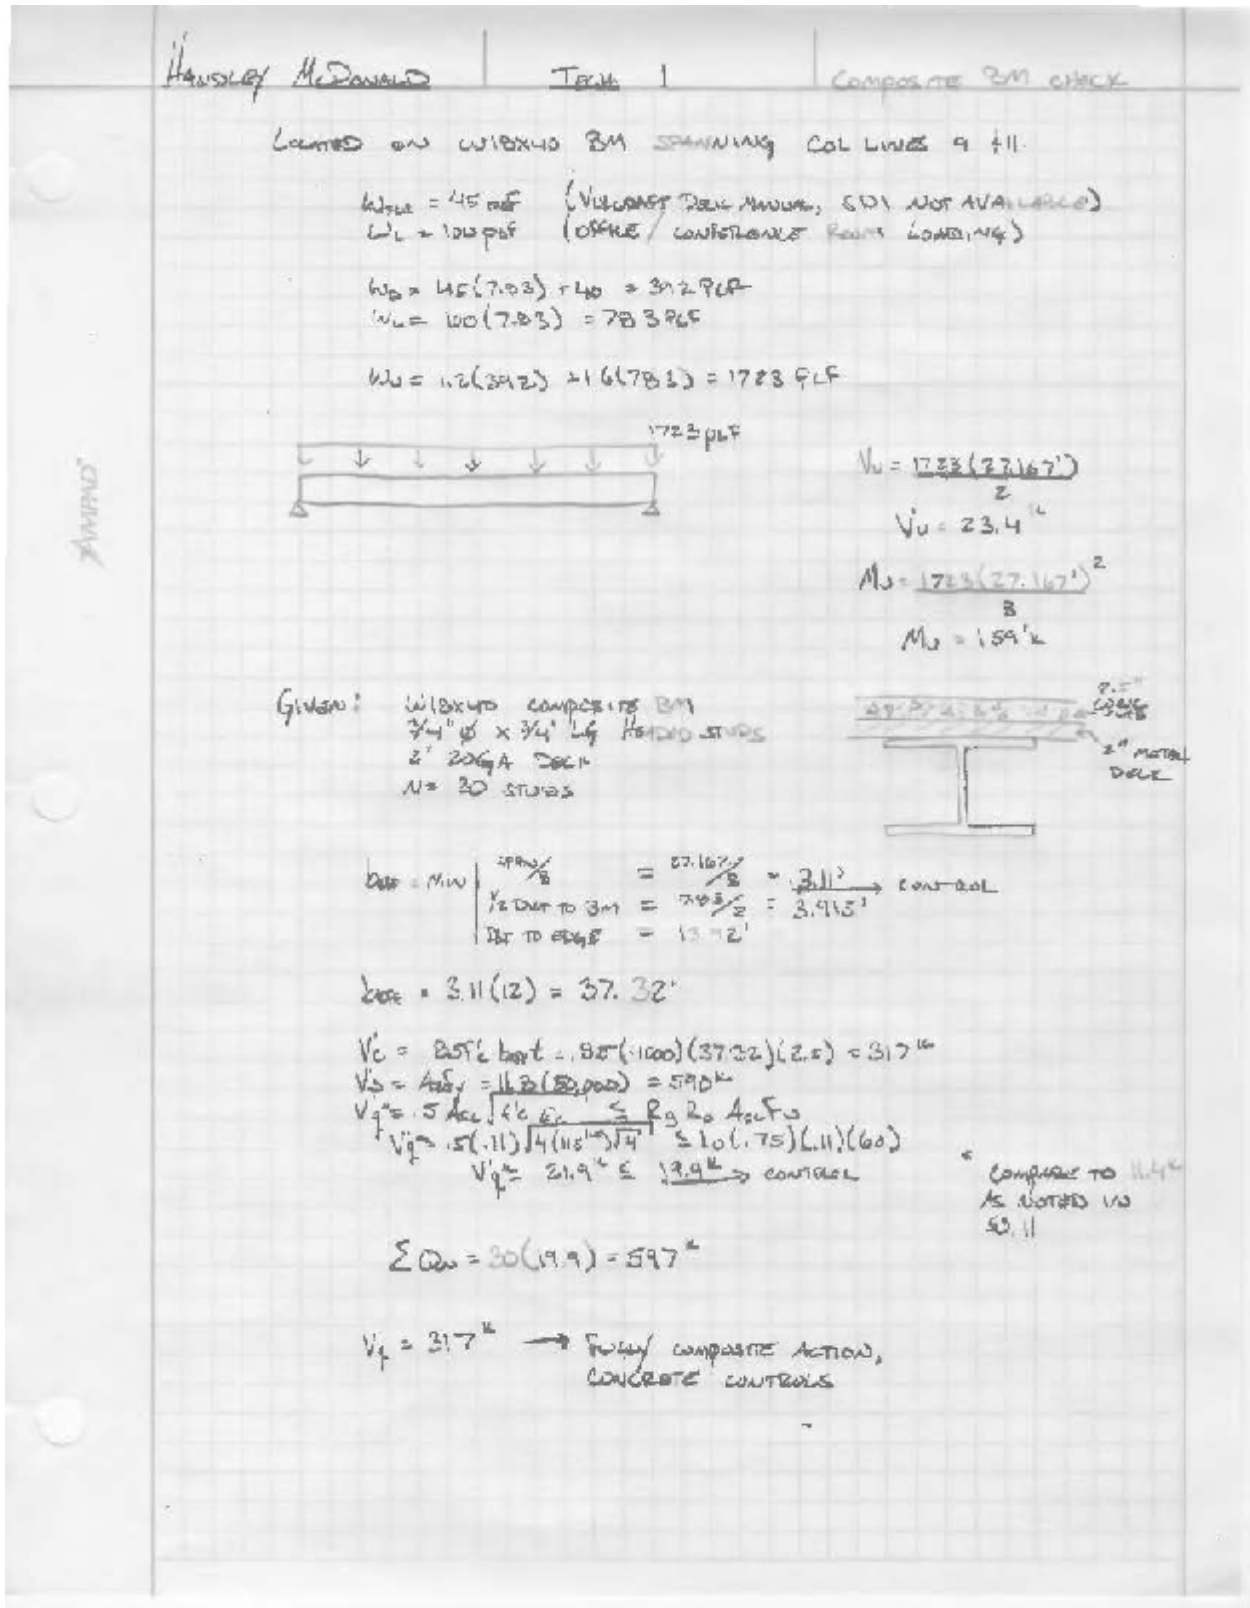 HANDLEY McDONALD TECH 1 COMPOSITE BM CHECK
LOCATED ON W18X40 BM SPANNING COL LINES 9 & 11.
= 45 PSF (VULCRAFT DECK MANUAL, SDI NOT AVAILABLE)
WL = 100 PSF (OFFICE / CONFERENCE ROOM LOADING)
WD = 45(7.83) + 40 = 392 PLF
WL = 100(7.83) = 783 PLF
WU = 1.2(392) + 1.6(783) = 1723 PLF
1723 PLF
VU = 1723(27.167')
2
VU = 23.4 k
MU = 1723(27.167')²
8
MU = 159'k
GIVEN: W18X40 COMPOSITE BM
3/4" Ø x 3/4" LG HEADED STUDS
2" 20GA DECK
N = 30 STUDS
2.5" CONC
2" METAL DECK
beff = MIN SPAN/8 = 27.167/8 = 3.11' → CONTROL
1/2 DIST TO BM = 7.83/2 = 3.915'
DIST TO EDGE = 13.92'
beff = 3.11(12) = 37.32"
V'c = .85f'c beff t = .85( )(37.32)(2.5) = 317 k
V's = AsFy = 11.8(50,000) = 590 k
V'q* = .5 Asc √f'c Ec ≤ Rg Rp Asc Fu
V'q* = .5(.11)√4( )√4 ≤ 1.0(.75)(.11)(60)
V'q* = 21.9 k ≤ 19.9 k → CONTROL
* COMPARE TO 11.4 k
AS NOTED IN
S3.11
Σ Qn = 30(19.9) = 597 k
V'q = 317 k → FULLY COMPOSITE ACTION,
CONCRETE CONTROLS
AMPAD